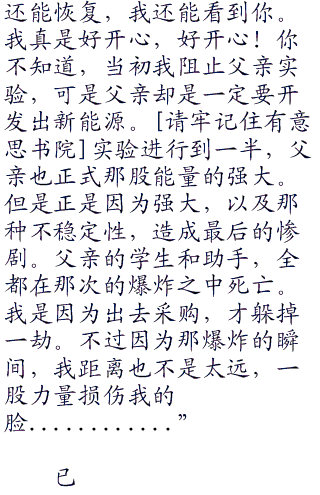 还能恢复，我还能看到你。
我真是好开心，好开心！你
不知道，当初我阻止父亲实
验，可是父亲却是一定要开
发出新能源。[请牢记住有意
思书院]实验进行到一半，父
亲也正式那股能量的强大。
但是正是因为强大，以及那
种不稳定性，造成最后的惨
剧。父亲的学生和助手，全
都在那次的爆炸之中死亡。
我是因为出去采购，才躲掉
一劫。不过因为那爆炸的瞬
间，我距离也不是太远，一
股力量损伤我的
脸............”
已